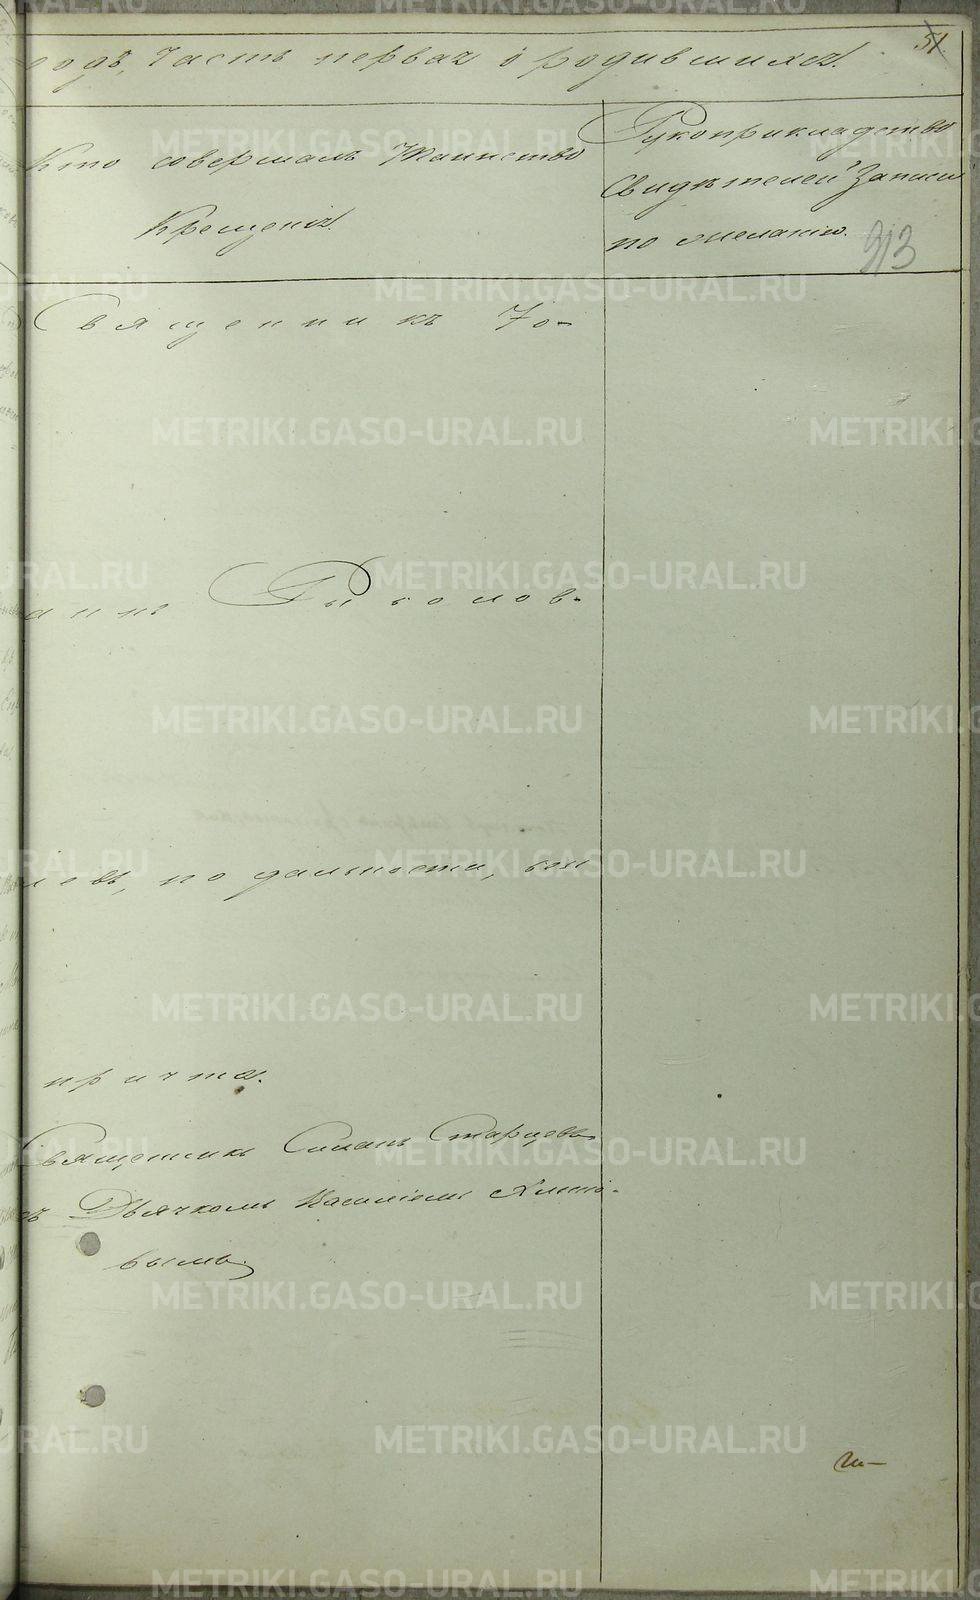 51
годъ, часть первая о родившихся.
Кто совершалъ Таинство
Крещенія.
Рукоприкладство
Свидѣтелей Записи
по желанію.
913
Священникъ Іо-
аннъ Рыболов-
левъ, по дальности, без
причта.
Священникъ Симонъ Старцевъ
съ Дьячкомъ Василіемъ
вымъ.
METRIKI.GASO-URAL.RU